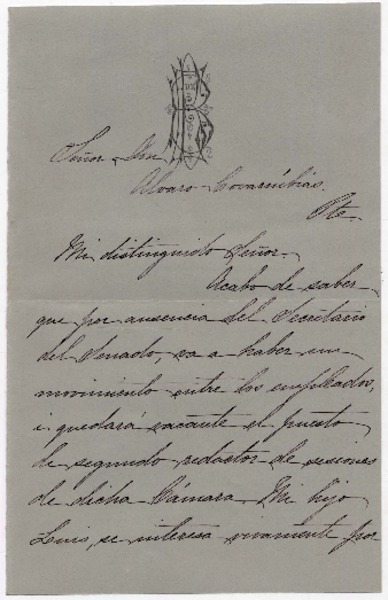 Señor Don
Alvaro Covarrúbias.
Pte.
Mi distinguido Señor
Acabo de saber
que por ausencia del Secretario
del Senado, va a haber un
movimiento entre los empleados,
i quedará vacante el puesto
de segundo redactor de sesiones
de dicha Cámara. Mi hijo
Luis, se interesa vivamente por